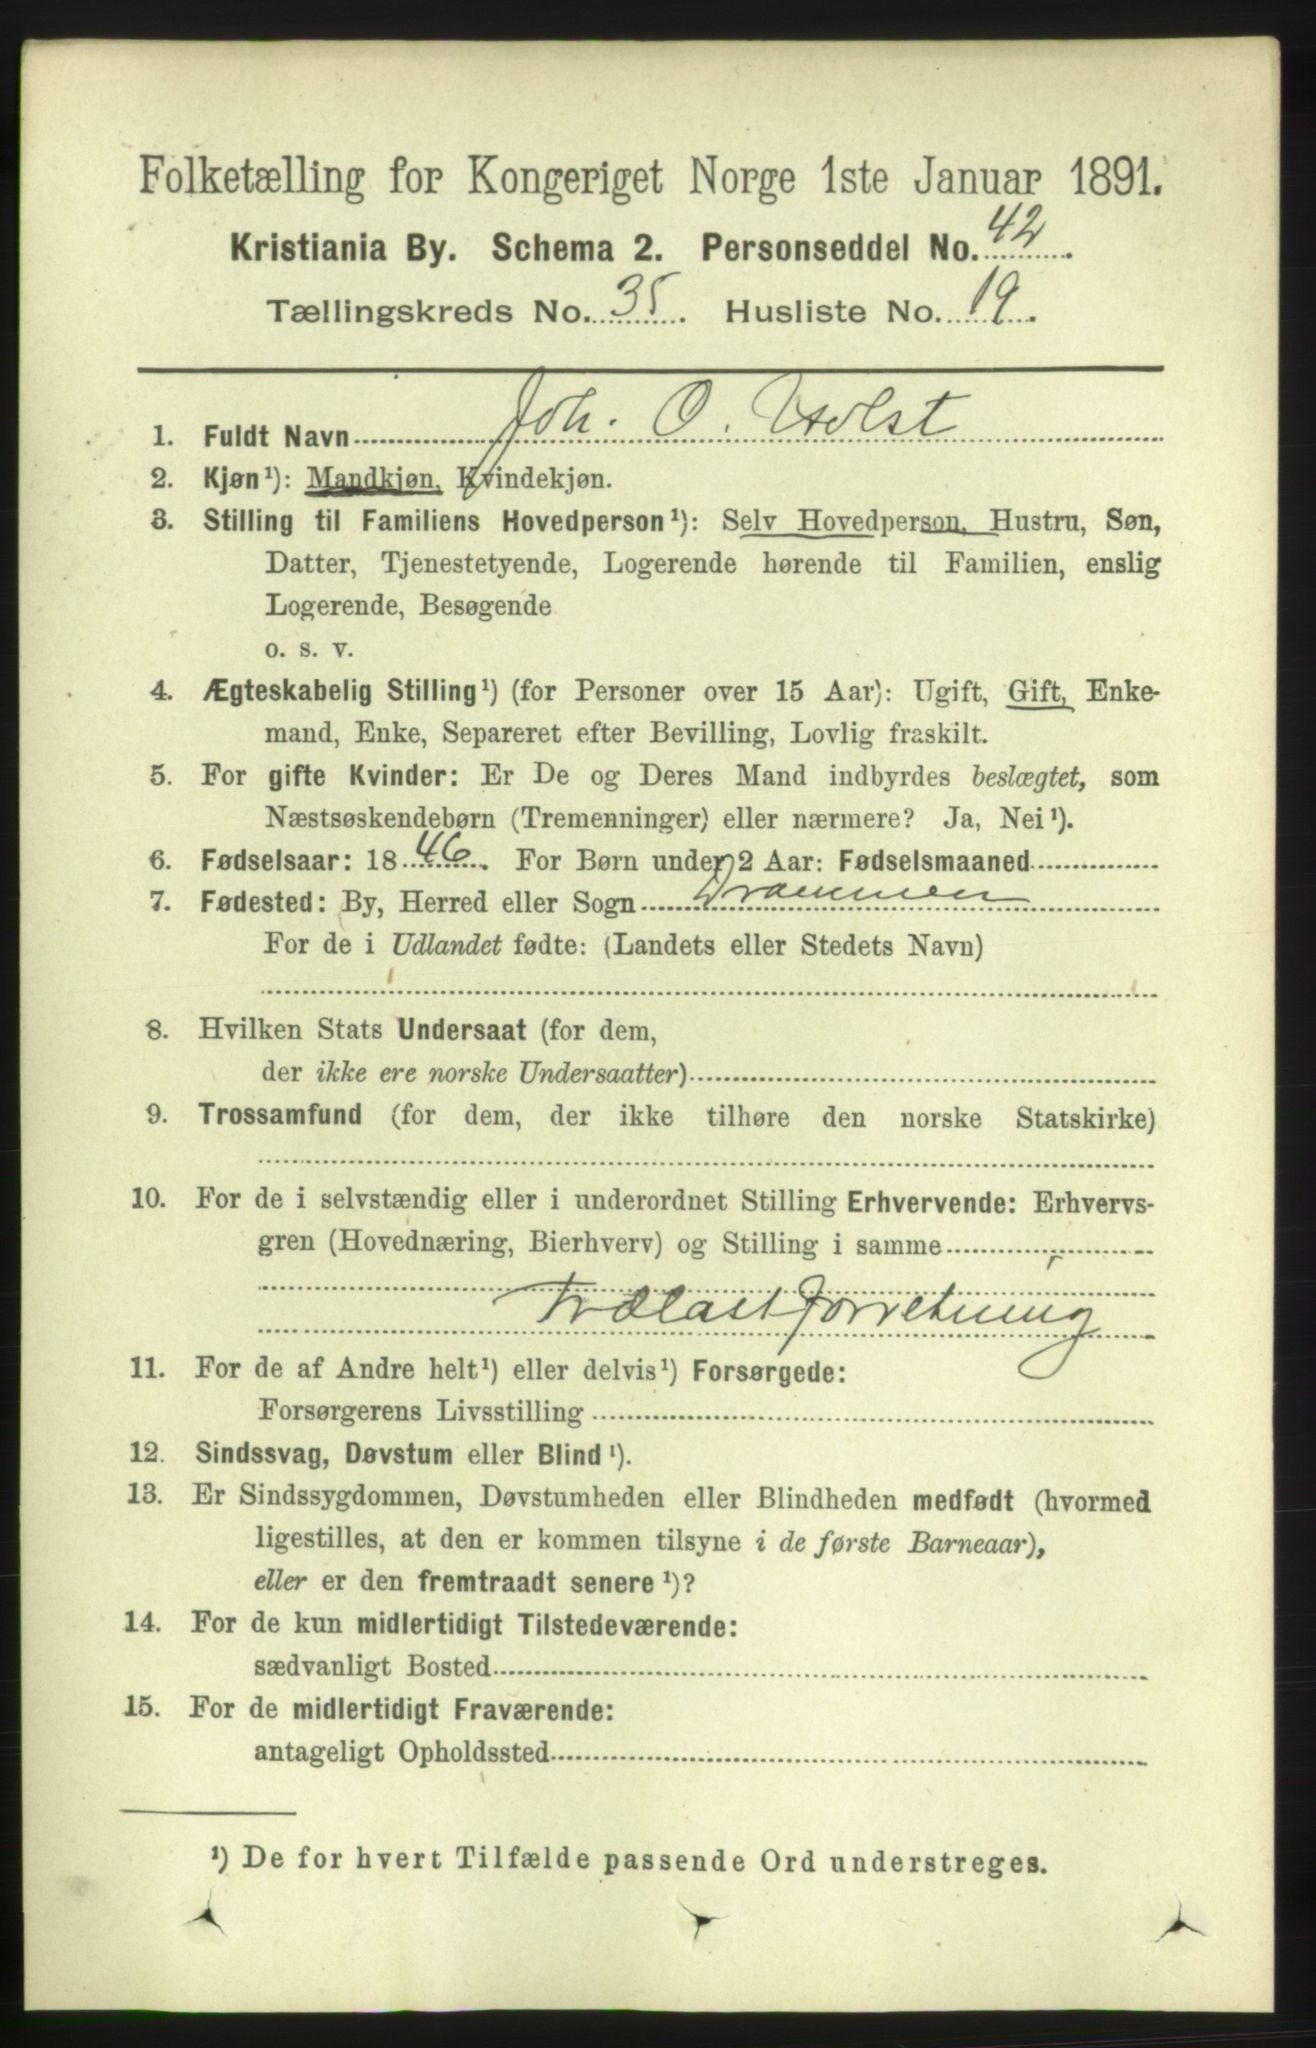 Folketælling for Kongeriget Norge 1ste Januar 1891.
Kristiania By. Schema 2. Personseddel No. 42.
Tællingskreds No. 35. Husliste No. 19.
1. Fuldt Navn Joh. O. Holst
2. Kjøn¹): Mandkjøn, Kvindekjøn.
3. Stilling til Familiens Hovedperson¹): Selv Hovedperson, Hustru, Søn,
Datter, Tjenestetyende, Logerende hørende til Familien, enslig
Logerende, Besøgende
o. s. v.
4. Ægteskabelig Stilling¹) (for Personer over 15 Aar): Ugift, Gift, Enke-
mand, Enke, Separeret efter Bevilling, Lovlig fraskilt.
5. For gifte Kvinder: Er De og Deres Mand indbyrdes beslægtet, som
Næstsøskendebørn (Tremenninger) eller nærmere? Ja, Nei¹).
6. Fødselsaar: 1846. For Børn under 2 Aar: Fødselsmaaned
7. Fødested: By, Herred eller Sogn Drammen
For de i Udlandet fødte: (Landets eller Stedets Navn)
8. Hvilken Stats Undersaat (for dem,
der ikke ere norske Undersaatter)
9. Trossamfund (for dem, der ikke tilhøre den norske Statskirke)
10. For de i selvstændig eller i underordnet Stilling Erhvervende: Erhvervs-
gren (Hovednæring, Bierhverv) og Stilling i samme
Trælastforretning
11. For de af Andre helt¹) eller delvis¹) Forsørgede:
Forsørgerens Livsstilling
12. Sindssvag, Døvstum eller Blind¹).
13. Er Sindssygdommen, Døvstumheden eller Blindheden medfødt (hvormed
ligestilles, at den er kommen tilsyne i de første Barneaar),
eller er den fremtraadt senere¹)?
14. For de kun midlertidigt Tilstedeværende:
sædvanligt Bosted
15. For de midlertidigt Fraværende:
antageligt Opholdssted
¹) De for hvert Tilfælde passende Ord understreges.